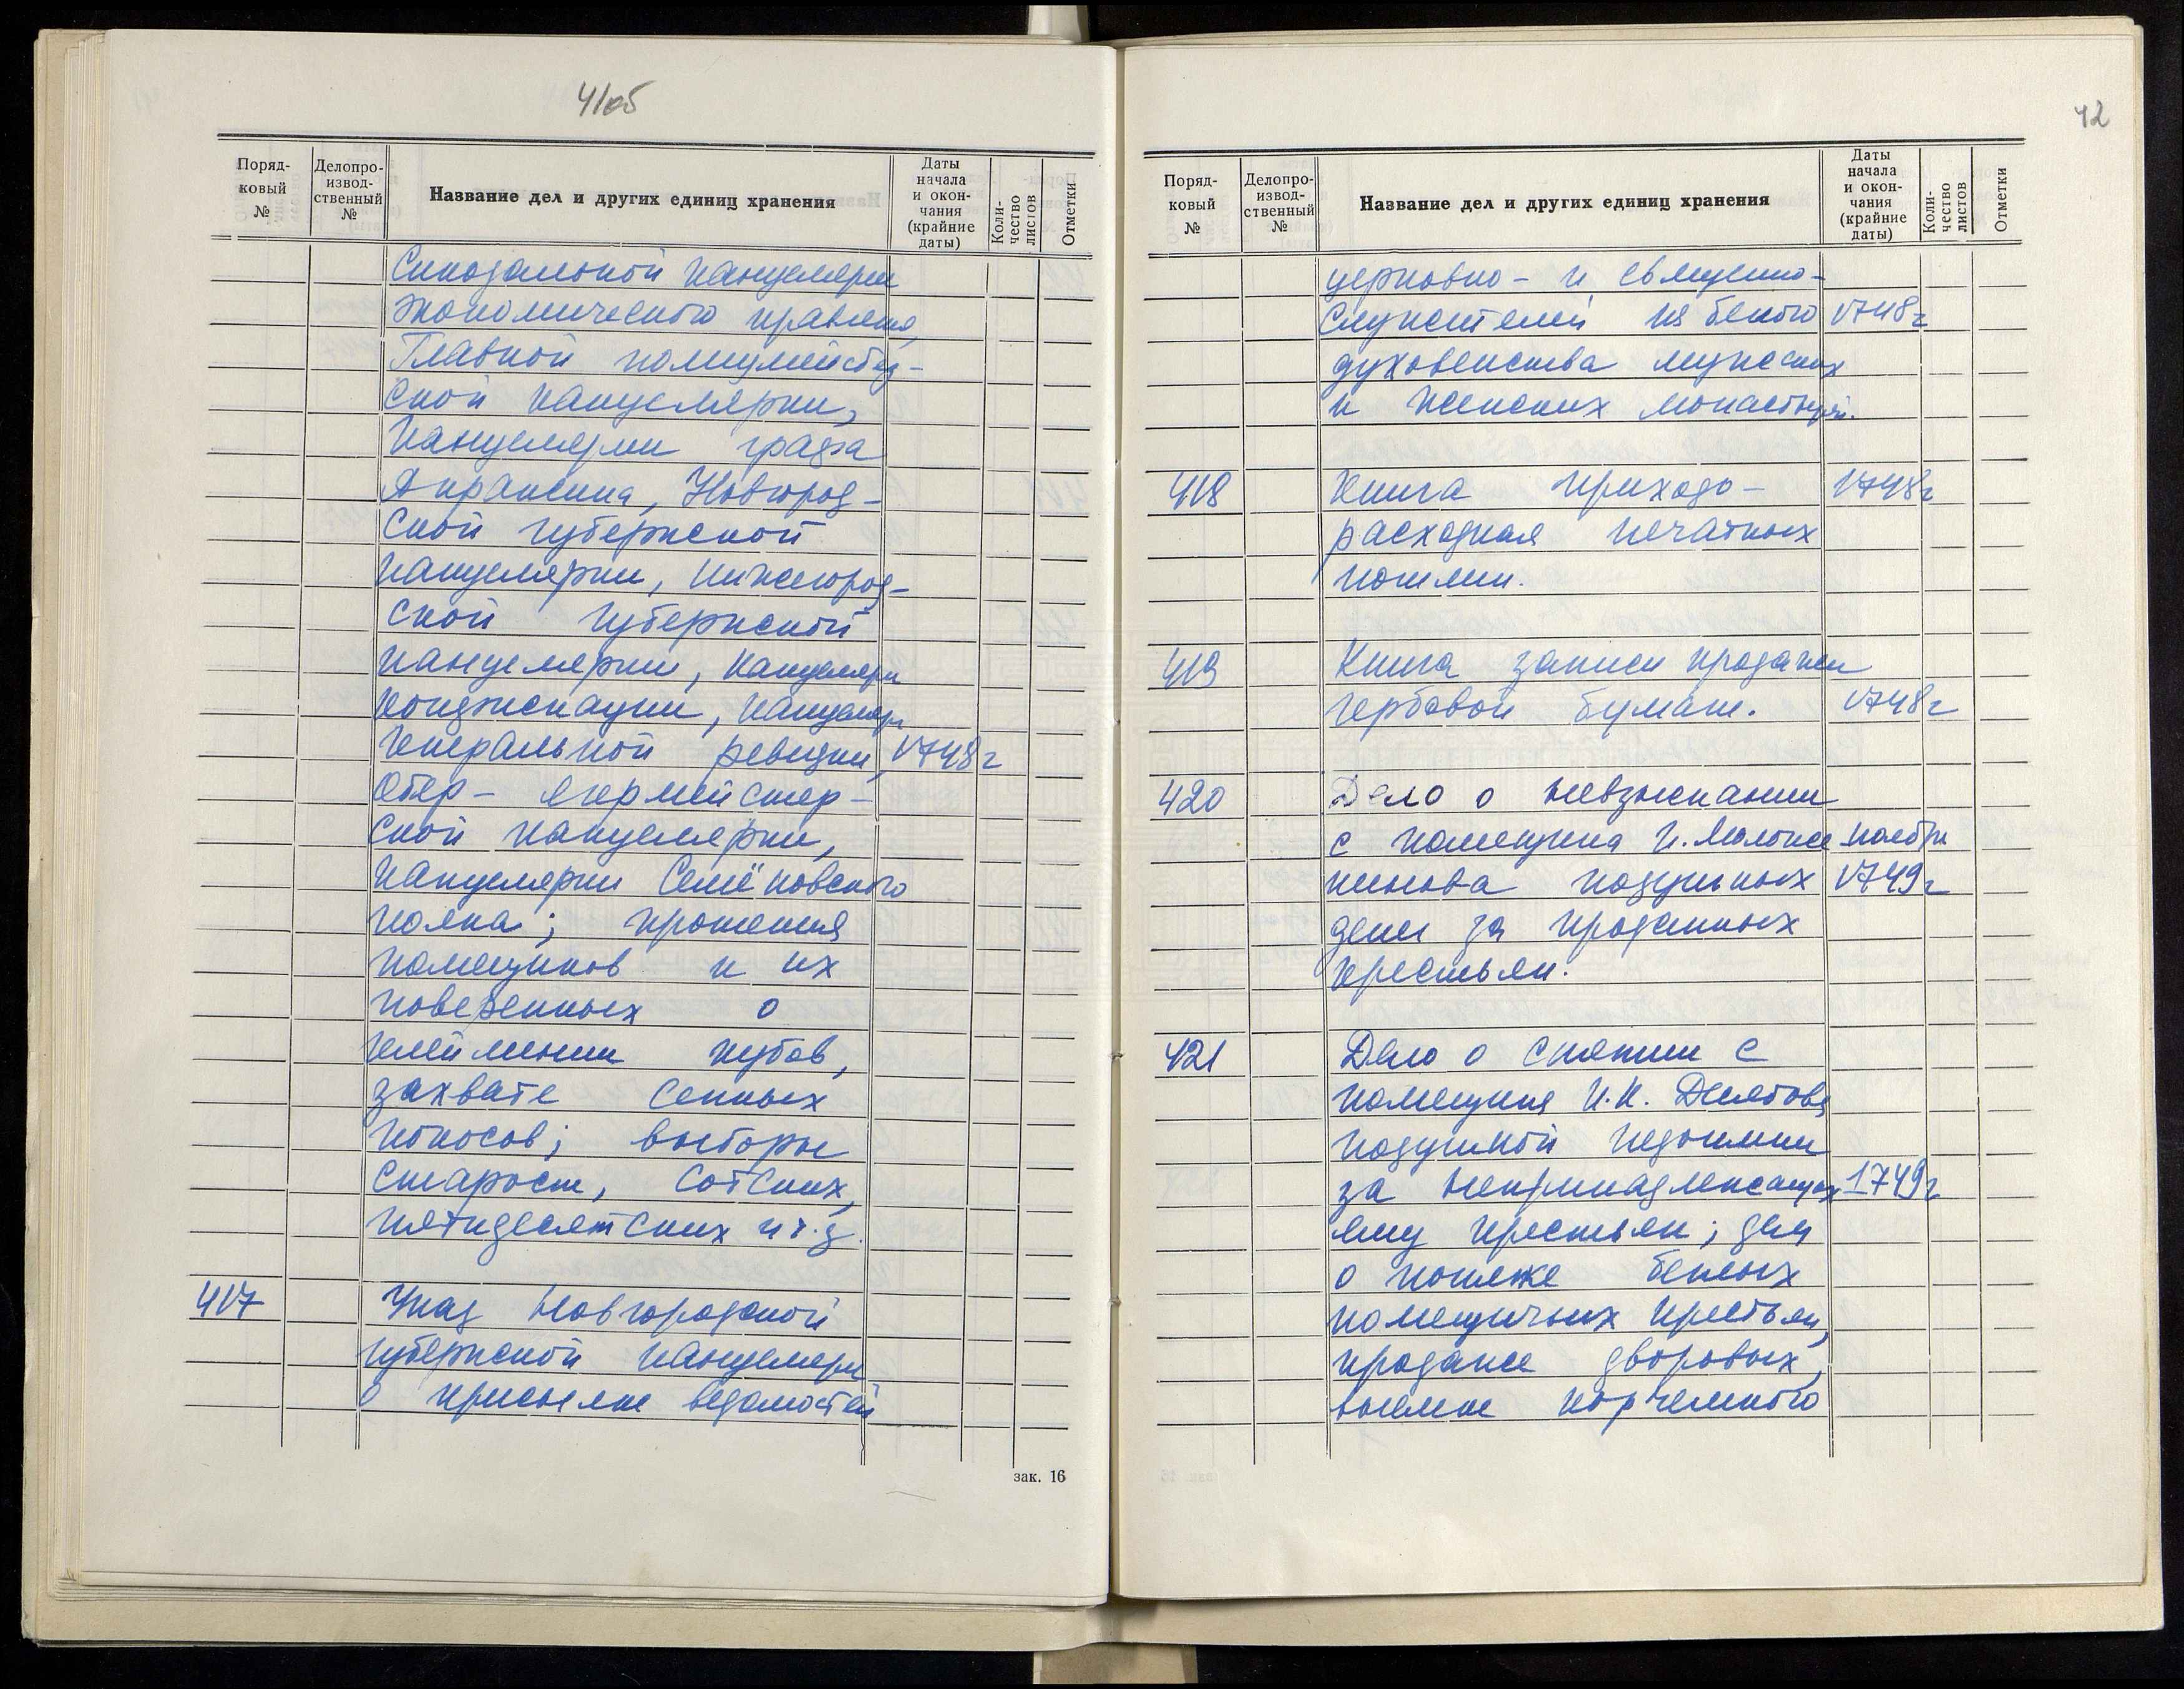 41об
Поряд-
ковый
№
Делопро-
извод-
ственный
№
Название дел и других единиц хранения
Даты
начала
и окон-
чания
(крайние
даты)
Коли-
чество
листов
Отметки
Синодальной канцелярии
экономического правления,
Главной полицмейстер-
ской канцелярии,
канцелярии графа
Апраксина, Новгород-
ской губернской
канцелярии, Нижегород-
ской губернской
канцелярии, канцелярии
конфискации, канцелярии
генеральной ревизии, 1748 г
обер-егермейстер-
ской канцелярии,
канцелярии Семёновского
полка; прошения
помещиков и их
поверенных о
клеймении кубов,
захвате сенных
покосов; выборы
старост, сотских,
пятидесятских и т.д.
417 Указ Новгородской
губернской канцелярии
о присылке ведомостей
зак. 16
42
Поряд-
ковый
№
Делопро-
извод-
ственный
№
Название дел и других единиц хранения
Даты
начала
и окон-
чания
(крайние
даты)
Коли-
чество
листов
Отметки
церковно- и священно-
служителей из белого 1748 г
духовенства мужских
и женских монастырей.
418 Книга приходо- 1748 г
расходная печатных
пошлин.
419 Книга записи продажи
гербовой бумаги. 1748 г
420 Дело о невзыскании
с помещика И. ноябрь
подушных 1749 г
денег за проданных
крестьян.
421 Дело о снятии с
помещика И.И.
подушной недоимки
за непринадлежащих 1749 г
ему крестьян; дела
о поимке беглых
помещичьих крестьян,
продаже дворовых,
выемке корчемного